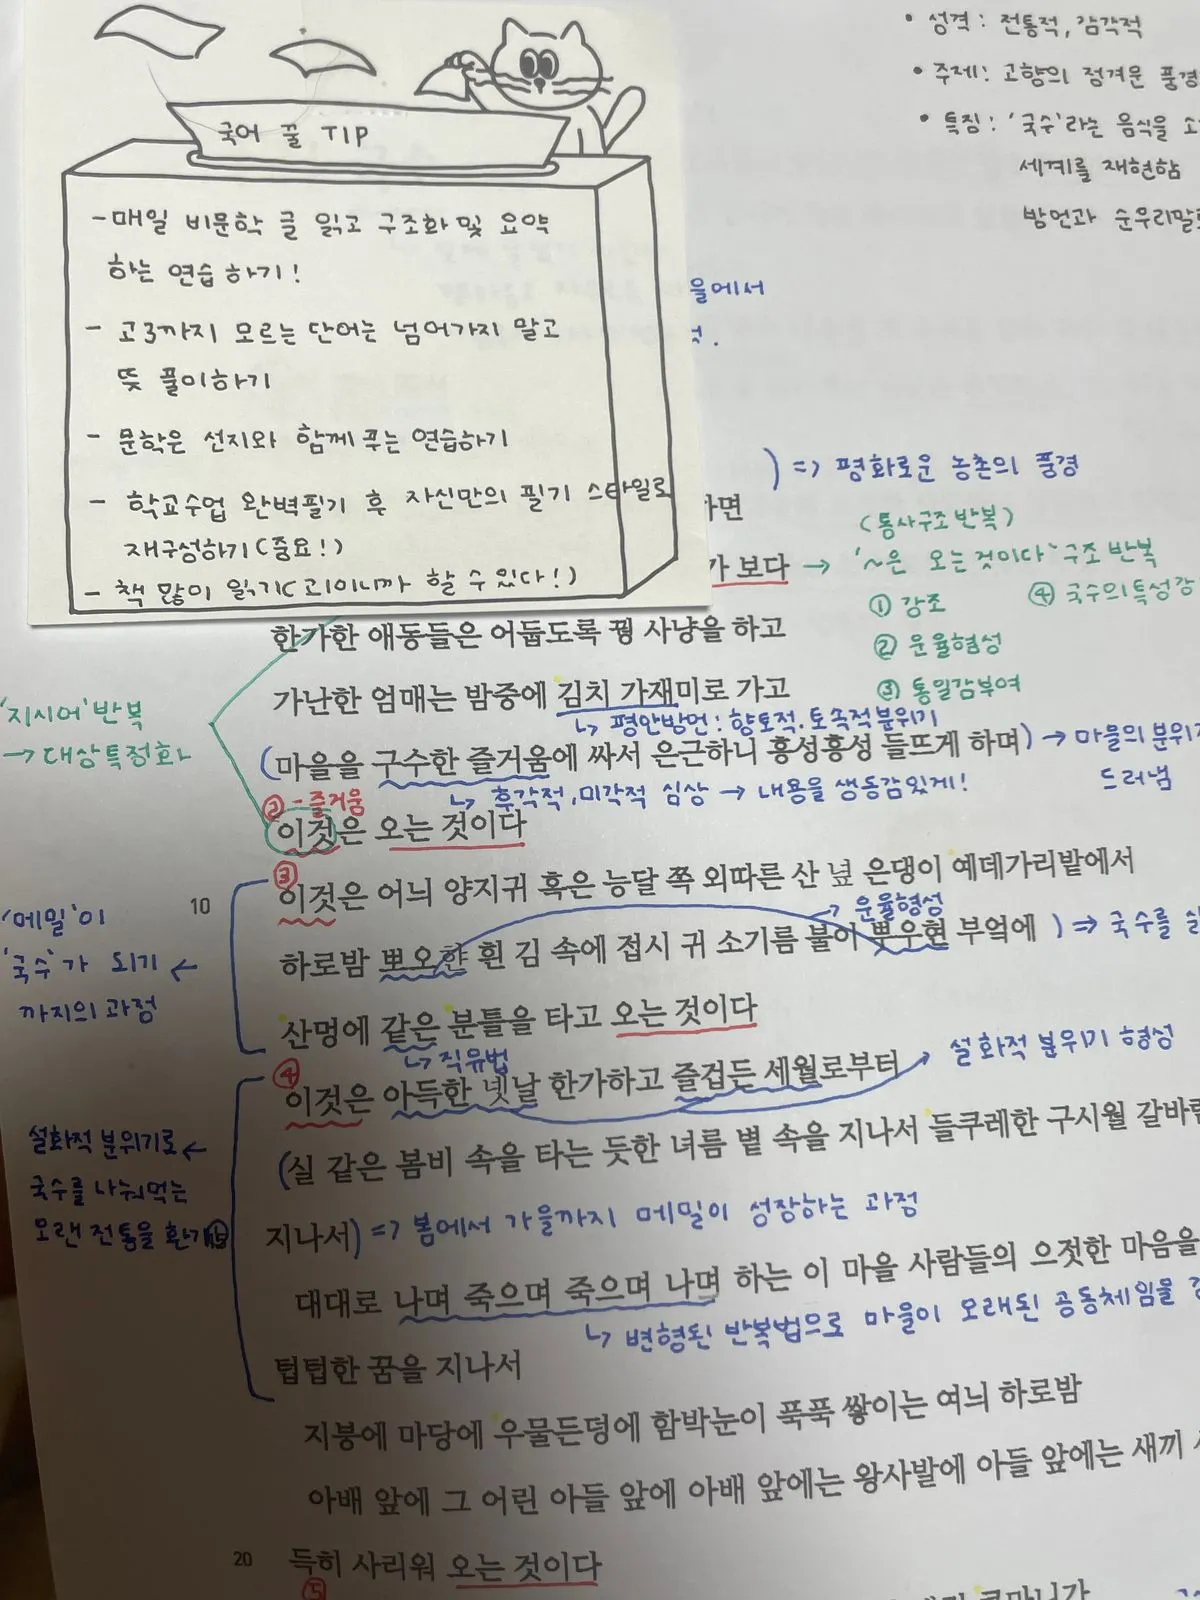 국어 꿀 TIP
-매일 비문학 글 읽고 구조화 및 요약
하는 연습 하기!
- 고3까지 모르는 단어는 넘어가지 말고
뜻 풀이하기
- 문학은 선지와 함께 푸는 연습하기
- 학교수업 완벽필기 후 자신만의 필기 스타일로
재구성하기(중요!)
- 책 많이 읽기(고1이니까 할 수 있다!)
• 성격 : 전통적, 감각적
• 주제: 고향의 정겨운 풍경
• 특징 : '국수'라는 음식을
세계를 재현함
방언과 순우리말
을에서
) => 평화로운 농촌의 풍경
(통사구조반복)
가 보다 → '~은 오는 것이다' 구조 반복
① 강조
④ 국수의 특성강
② 운율형성
③ 통일감부여
한가한 애동들은 어둡도록 꿩 사냥을 하고
가난한 엄매는 밤중에 김치 가재미로 가고
↳ 평안방언: 향토적. 토속적분위기
'지시어' 반복
→ 대상특정화
(마을을 구수한 즐거움에 싸서 은근하니 흥성흥성 들뜨게 하며) → 마을의 분위기
드러냄
↳ 후각적, 미각적 심상 → 내용을 생동감있게!
② - 즐거움
이것은 오는 것이다
③
10 이것은 어늬 양지귀 혹은 능달 쪽 외따른 산 녚 은댕이 예데가리밭에서
→ 운율형성
하로밤 뽀오햔 흰 김 속에 접시 귀 소기름 불이 뿌우현 부엌에 ) => 국수를
'메밀'이
'국수'가 되기 ←
까지의 과정
산멍에 같은 분틀을 타고 오는 것이다
↳ 직유법
④
이것은 아득한 녯날 한가하고 즐겁든 세월로부터 → 설화적 분위기 형성
(실 같은 봄비 속을 타는 듯한 녀름 볕 속을 지나서 들쿠레한 구시월 갈바람
설화적 분위기로 ←
국수를 나눠먹는
오랜 전통을 환기
지나서) => 봄에서 가을까지 메밀이 성장하는 과정
대대로 나며 죽으며 죽으며 나며 하는 이 마을 사람들의 으젓한 마음을
↳ 변형된 반복법으로 마을이 오래된 공동체임을
텁텁한 꿈을 지나서
지붕에 마당에 우물든덩에 함박눈이 푹푹 쌓이는 여늬 하로밤
아배 앞에 그 어린 아들 앞에 아배 앞에는 왕사발에 아들 앞에는 새끼
20 득히 사리워 오는 것이다
⑤